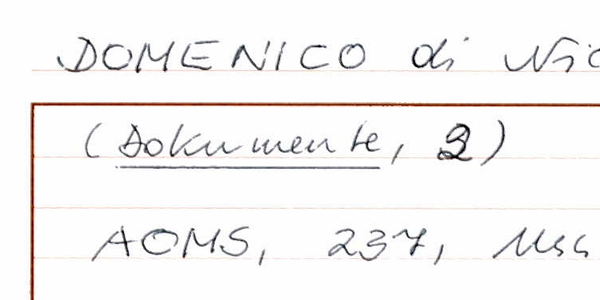 DOMENICO di Nic
(Dokumente, 2)
AOMS, 237, Mss